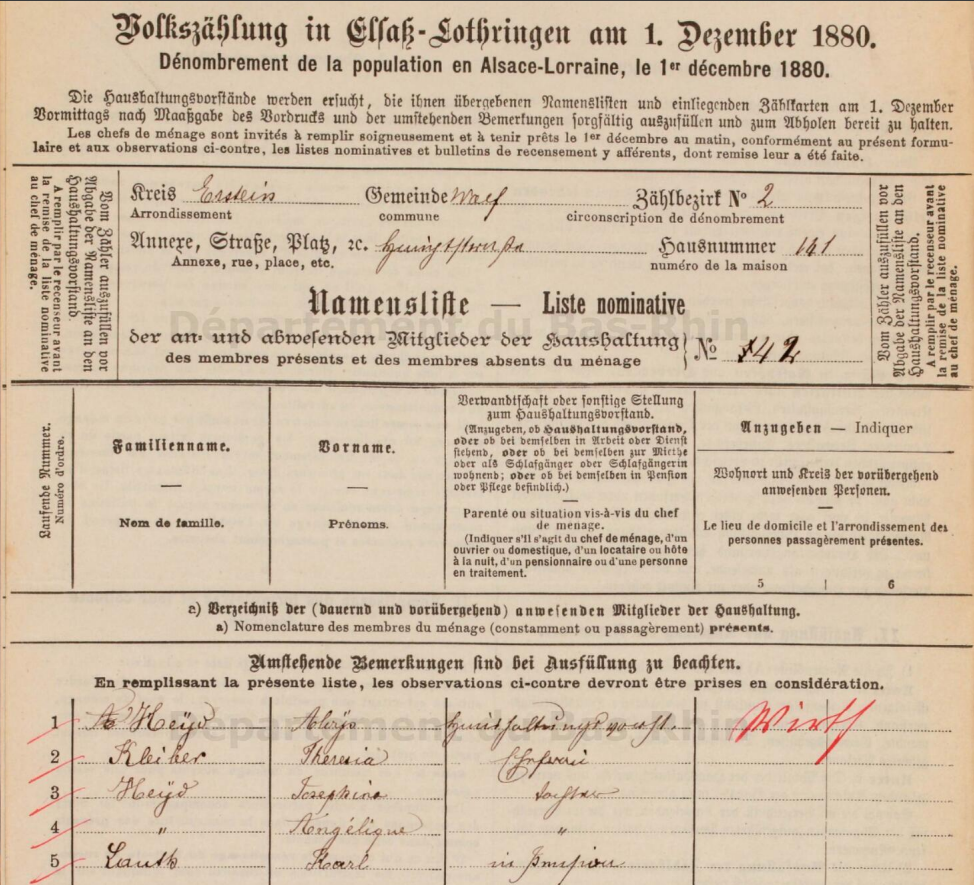 Volkszählung in Elsaß-Lothringen am 1. Dezember 1880.
Dénombrement de la population en Alsace-Lorraine, le 1er décembre 1880.
Die Haushaltungsvorstände werden ersucht, die ihnen übergebenen Namenslisten und einliegenden Zählkarten am 1. Dezember
Vormittags nach Maaßgabe des Vordrucks und der umstehenden Bemerkungen sorgfältig auszufüllen und zum Abholen bereit zu halten.
Les chefs de ménage sont invités à remplir soigneusement et à tenir prêts le 1er décembre au matin, conformément au présent formu-
laire et aux observations ci-contre, les listes nominatives et bulletins de recensement y afférents, dont remise leur a été faite.
Vom Zähler auszufüllen vor
Abgabe der Namensliste an den
Haushaltungsvorstand.
A remplir par le recenseur avant
la remise de la liste nominative
au chef de ménage.
Kreis Erstein Gemeinde Walf Zählbezirk No 2
Arrondissement commune circonscription de dénombrement
Annexe, Straße, Platz, 2c. Hauptstrasse Hausnummer 141
Annexe, rue, place, etc. numéro de la maison
Namensliste — Liste nominative
Département du Bas-Rhin
der an- und abwesenden Mitglieder der Haushaltung
des membres présents et des membres absents du ménage
No 142
Vom Zähler auszufüllen vor
Abgabe der Namensliste an den
Haushaltungsvorstand.
A remplir par le recenseur avant
la remise de la liste nominative
au chef de ménage.
Laufende Nummer.
Numéro d'ordre.
Familienname.
—
Nom de famille.
Vorname.
—
Prénoms.
Verwandtschaft oder sonstige Stellung
zum Haushaltungsvorstand.
(Anzugeben, ob Haushaltungsvorstand,
oder ob bei demselben in Arbeit oder Dienst
stehend, oder ob bei demselben zur Miethe
oder als Schlafgänger oder Schlafgängerin
wohnend; oder ob bei demselben in Pension
oder Pflege befindlich.)
—
Parenté ou situation vis-à-vis du chef
de menage.
(Indiquer s'il s'agit du chef de ménage, d'un
ouvrier ou domestique, d'un locataire ou hôte
à la nuit, d'un pensionnaire ou d'une personne
en traitement.
Anzugeben — Indiquer
Wohnort und Kreis der vorübergehend
anwesenden Personen.
—
Le lieu de domicile et l'arrondissement des
personnes passagèrement présentes.
5 6
a) Verzeichniß der (dauernd und vorübergehend) anwesenden Mitglieder der Haushaltung.
a) Nomenclature des membres du ménage (constamment ou passagèrement) présents.
Umstehende Bemerkungen sind bei Ausfüllung zu beachten.
En remplissant la présente liste, les observations ci-contre devront être prises en considération.
1 Heÿd Aloÿs Haushaltungsvorst. Wirth
Département du Bas-Rhin
2 Kleiber Theresia Ehefrau
3 Heÿd Josephina Tochter
4 " Angélique "
5 Lauth Karl in Pension